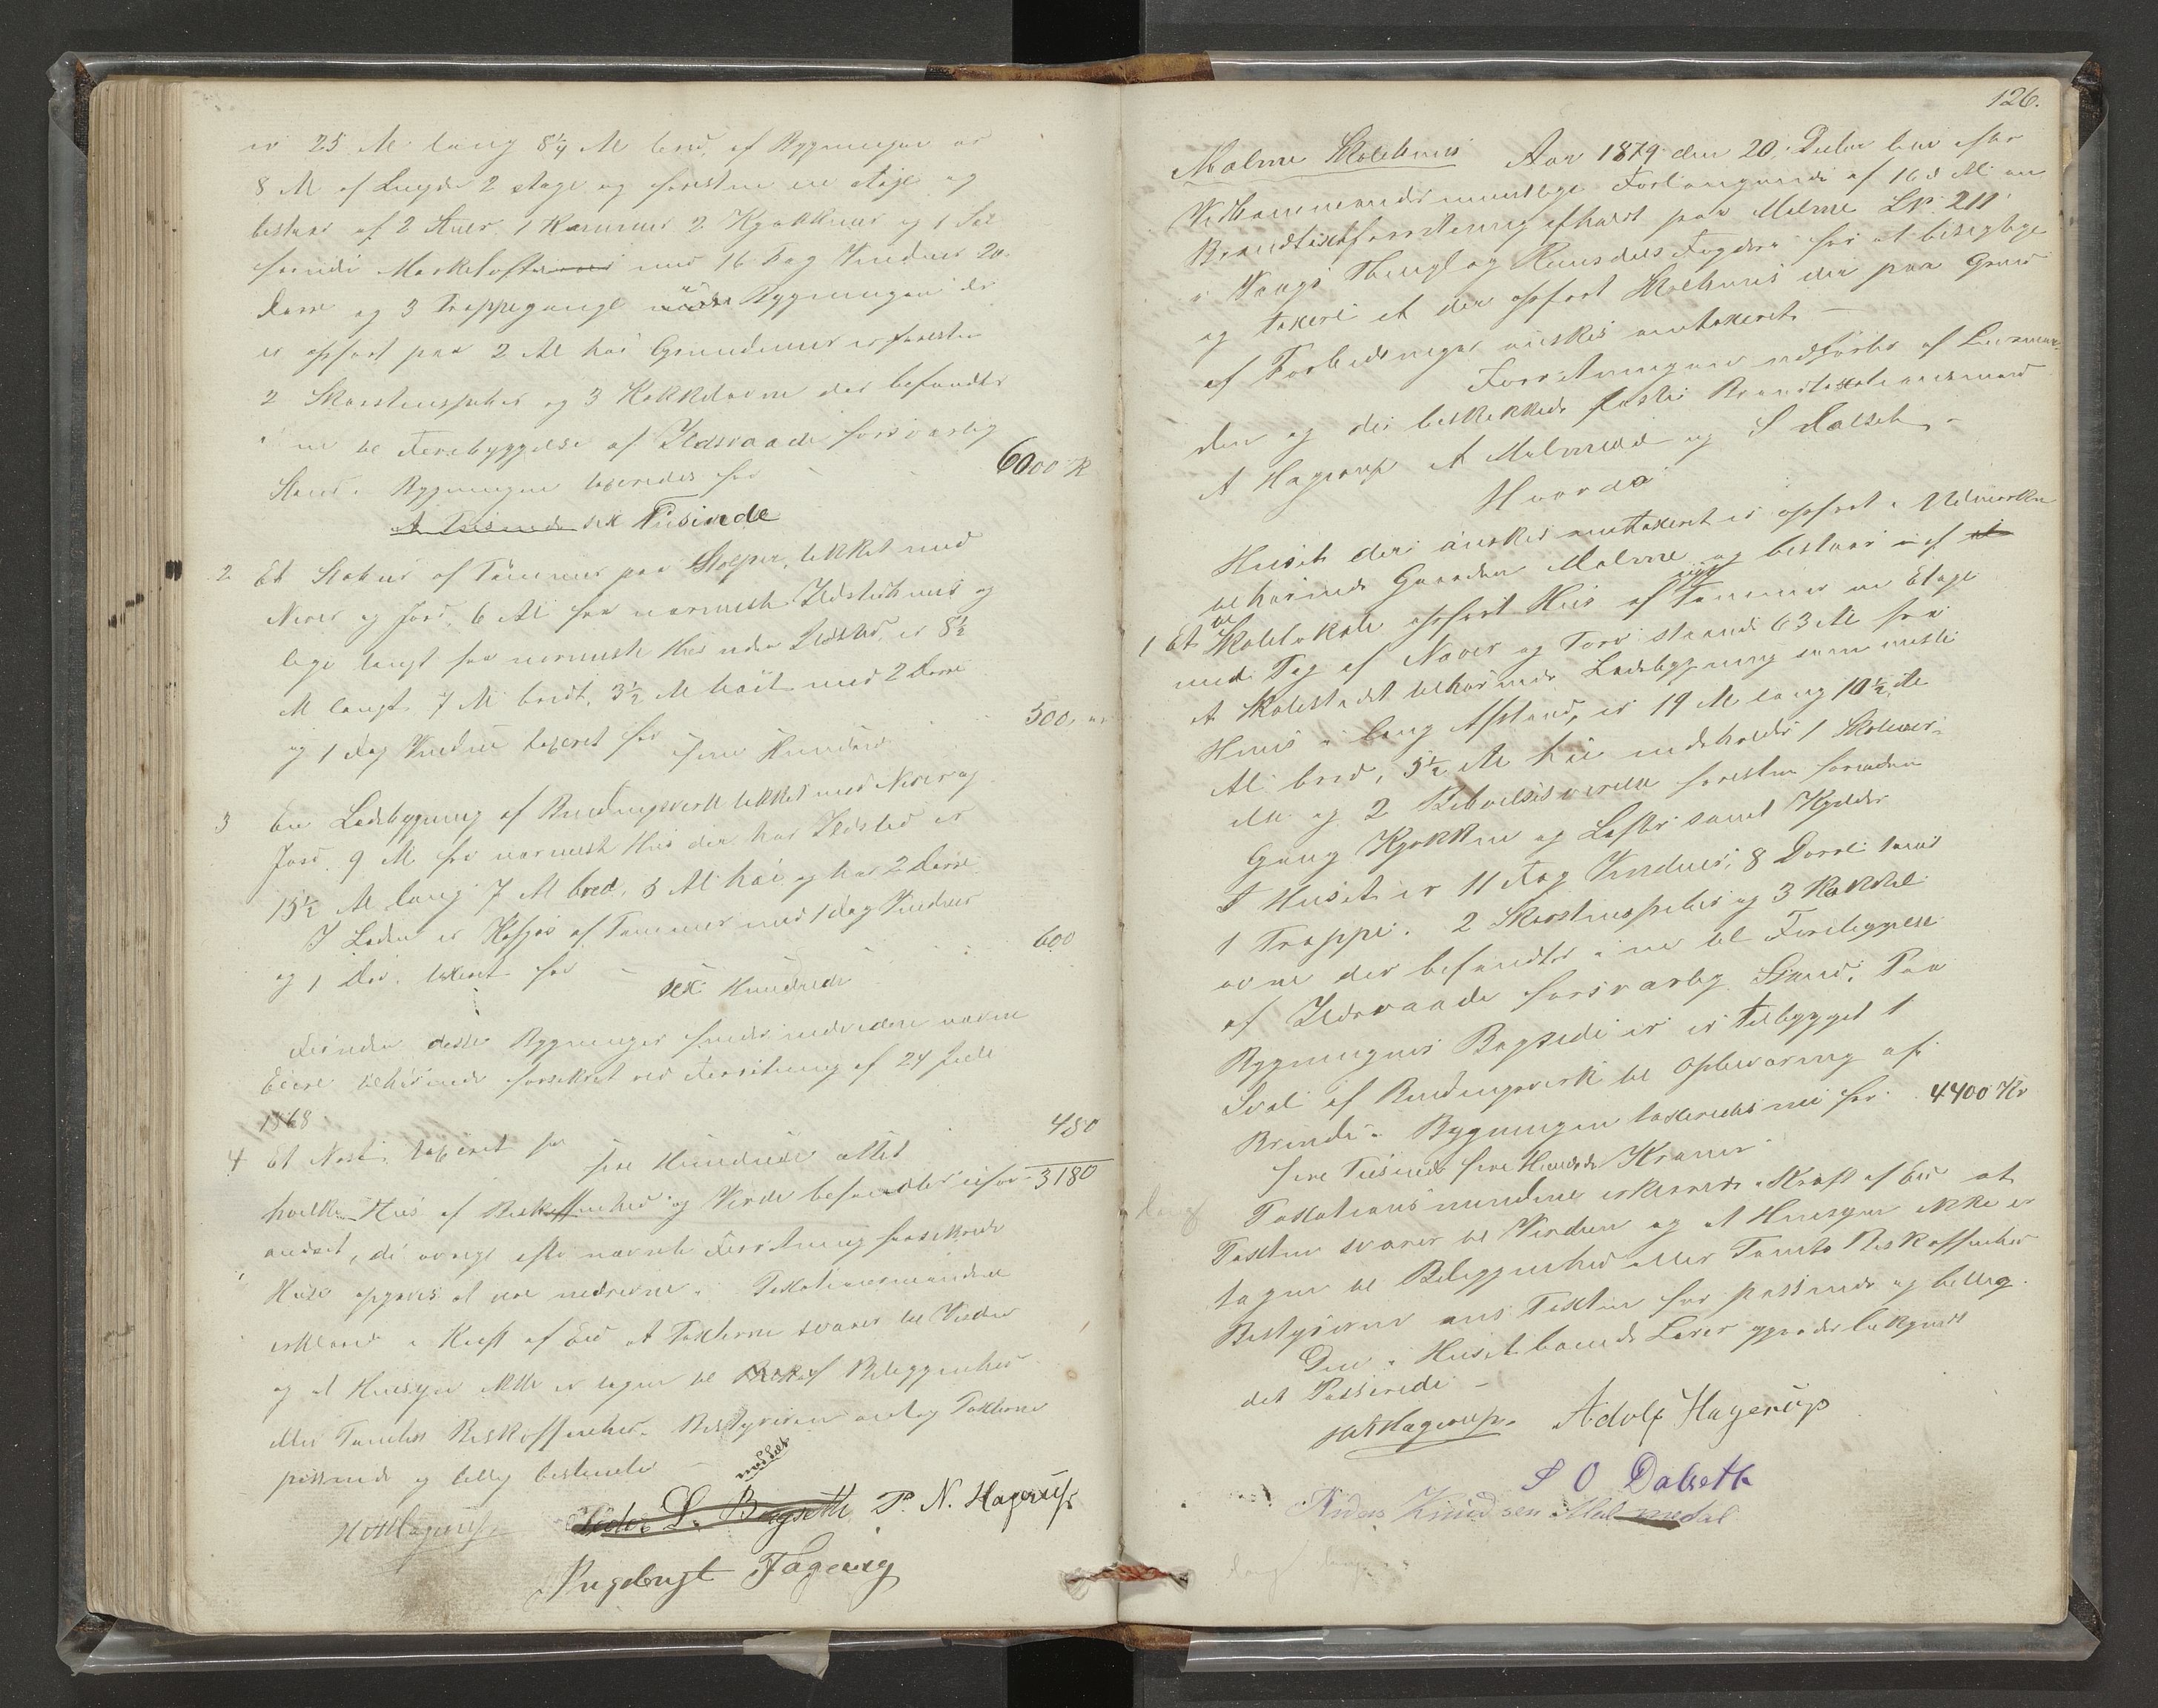 er 25 Al lang 8¼ Al bred, af Bygningen er
8 Al af Længde 2 etage og foresten en etage og
bestaar af 2 Stuer, 1 Kammer 2 Kjøkkener og 1 Sal
foruden Mørkelofter med 16 Fag Vinduer 20
Døre og 3 Trappegange Bygningen der
er opført paa 2 Al høi Grundmur er foresten
2 Skorstenspiber og 3 Kakkelovne der befandtes
i en til Forebyggelse af Ildsvaade forsvarlig
Stand. Bygningen taxeredes for 6000 K
sex Tusinde
2 Et Stabur af Tømmer paa Stolper, tækket med
Never og Jord, 6 Al fra nærmeste Ildstedhus og
lige langt fra nærmeste Hus uden Ildsted, er 8½
Al langt 7 Al bredt, 3½ Al høit med 2 Døre
og 1 Fag Vindue taxeret for 500
fem Hundrede
3 En Ladebygning af Bindingsverk tækket med Never og
Jord, 9 Al fra nærmeste Hus der har Ildsted er
15½ Al lang 7 Al bred, 5 Al høi og har 2 Døre
I Laden er af Tømmer med 1 Fag Vinduer
og 1 Dør, taxeret for 600
sex Hundrede
Foruden disse Bygninger findes nedenstaaende
Eiere tilhørende forsikret ved Forretning af 24 Juli
1868
4 Et Nøst, taxeret for 480
fire Hundrede otteti
hvilke Hus af Beskaffenhed og Værdi befandtes ufor- 3180
andret, de øvrige efter nævnte Forretning forsikrede
Huse opgaves at være nedrevne. Taxationsmændene
erklærede i Kraft af Eed at Taxterne svarer til Værdien
og at Hensyn ikke er tagen til Beliggenhed
eller Tomtens Beskaffenhed. Bestyreren ansaa Taxterne
passende og billig bestemte
modsat
Hagerup Peder L. Bagseth P. N. Hagerup
Ingebrigt Fagerng
126.
Malme Skolehuus Aar 1879 den 20 Decbr blev efter
Vedkommendes mundtlige Forlangende af 16 d M en
Brandtaxtforretning afholdt paa Malme Lb 211
i Vaagø Thinglag Romsdals Fogderi for at besigtige
og taxere et der opført Skolehuus der paa Grund
af Forbedringer ønskes omtaxeret —
Forretningen udførtes af Lensman-
den og de beskikkede faste Brandtaxationsmænd
A Hagerup A Malmedal og S Dalseth —
Hvorda
Huset der ønskes omtaxeret er opført i Udmarken
tilhørende Gaarden Malme og bestaar af
1 Et til Skolelokale opført Hus af nyt Tømmer en Etage
med Tag af Never og Torv staaende 63 Al fra
et Skolestedet tilhørende Ladebygning som nærmeste
Huus i lang Afstand, er 19 Al lang 10½ Al
Al bred, 5½ Al høi indeholder 1 Skolevær-
else og 2 Beboelsesværelser foresten foruden
Gang Kjøkken og Lofter samt Kjelder
I Huset er 11 Fag Vinduer, 8 Dørre samt
1 Trappe. 2 Skorstenspiber og 3 Kakkel-
ovne der befandtes i en til Forebyggelse
af Ildsvaade forsvarlig Stand. Paa
Bygningens Bagside er er tilbygget 1
Sval af Bindingsverk til Opbevaring af
Brænde. Bygningen taxeredes nu for 4400 Kr
fire Tusinde fire Hundrede Kroner
Taxationsmændene erklærede i Kraft af Eed at
Taxten svarer til Værdien og at Hensyn ikke er
tagen til Beliggenhed eller Tomtens Beskaffenhed
Bestyreren ans Taxten for passende og billig.
Den i Huset boende Lærer gjordes bekjendt
det Passerede —
Hagerup. Adolf Hagerup
S O Dalseth
Anders Knudsen Malmedal